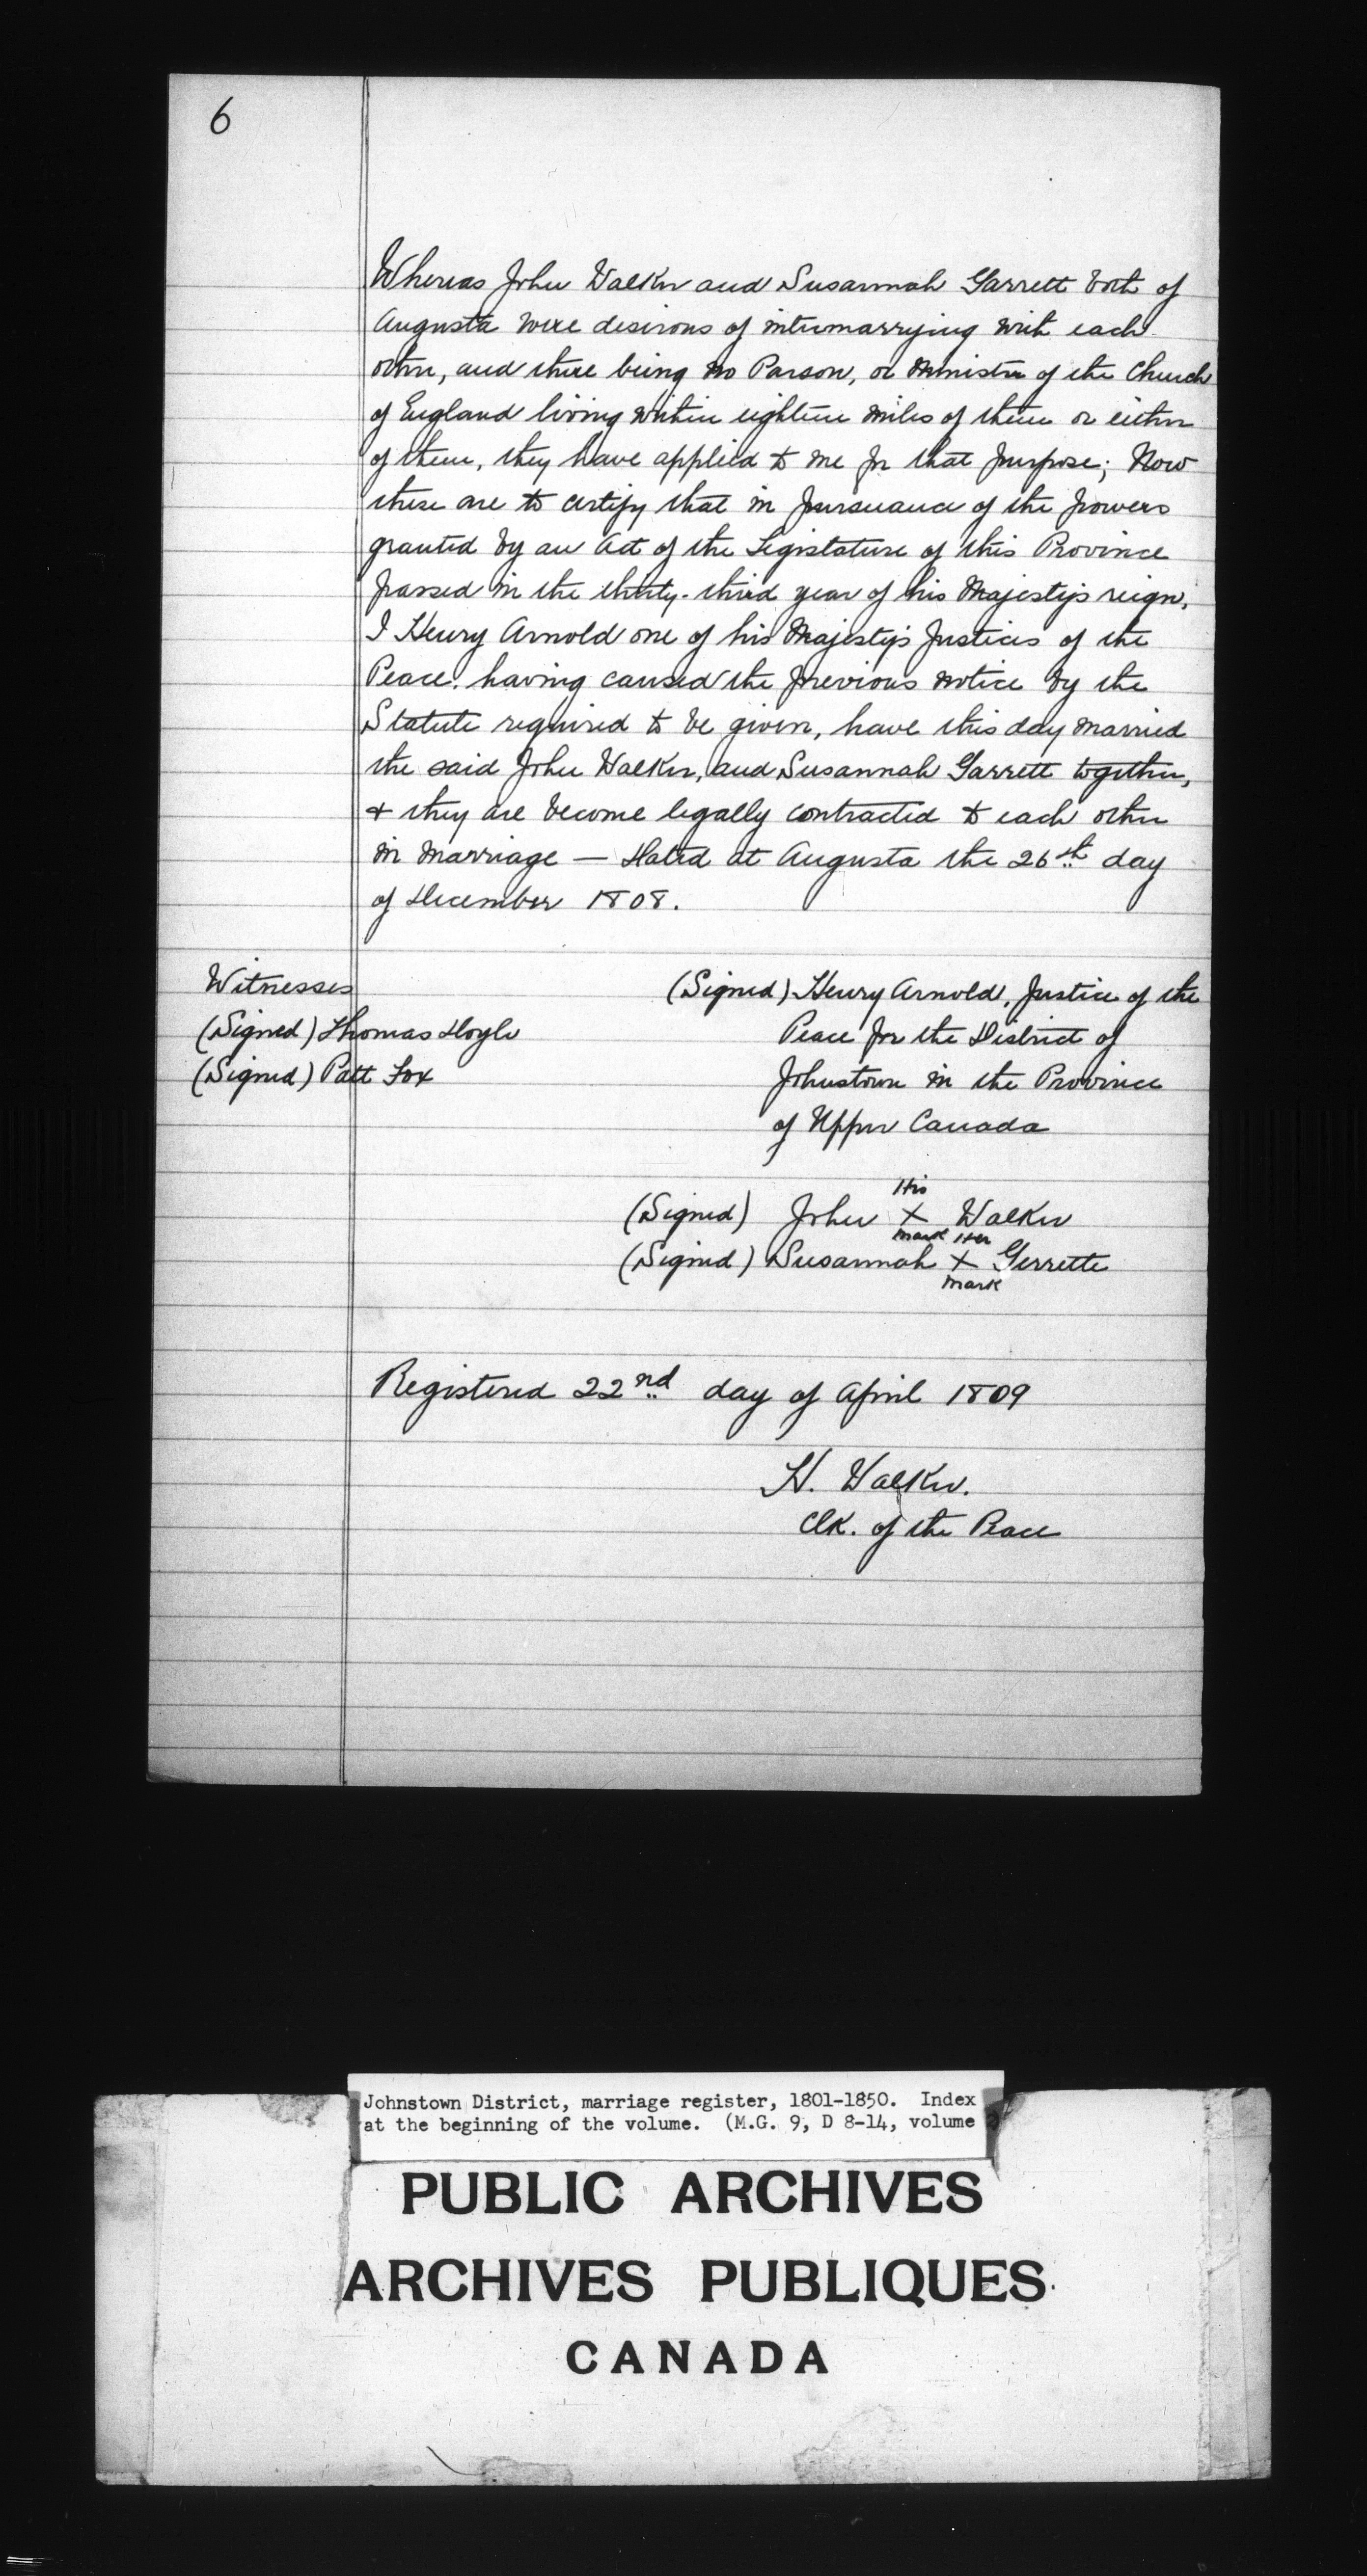 6
Whereas John Walker and Susannah Garrett both of
Augusta were desirous of intermarrying with each
other, and there being no Parson, or Minister of the Church
of England living within eighteen miles of them or either
of them, they have applied to me for that purpose; Now
these are to certify that in pursuance of the powers
granted by an Act of the Legislature of this Province
passed in the thirty-third year of his Majesty's reign,
I Henry Arnold one of his Majesty's Justices of the
Peace. having caused the previous notice by the
Statute required to be given, have this day married
the said John Walker, and Susannah Garrett together,
& they are become legally contracted to each other
in marriage — Dated at Augusta the 26th day
of December 1808.
Witnesses
(Signed) Thomas Doyle
(Signed) Patt Fox
(Signed) Henry Arnold, Justice of the
Peace for the District of
Johnstown in the Province
of Upper Canada
His
(Signed) John X Walker
mark Her
(Signed) Susannah X Gerrette
mark
Registered 22nd day of April 1809
H. Walker.
Clk. of the Peace
Johnstown District, marriage register, 1801-1850. Index
at the beginning of the volume. (M.G. 9, D 8-14, volume
PUBLIC ARCHIVES
ARCHIVES PUBLIQUES
CANADA